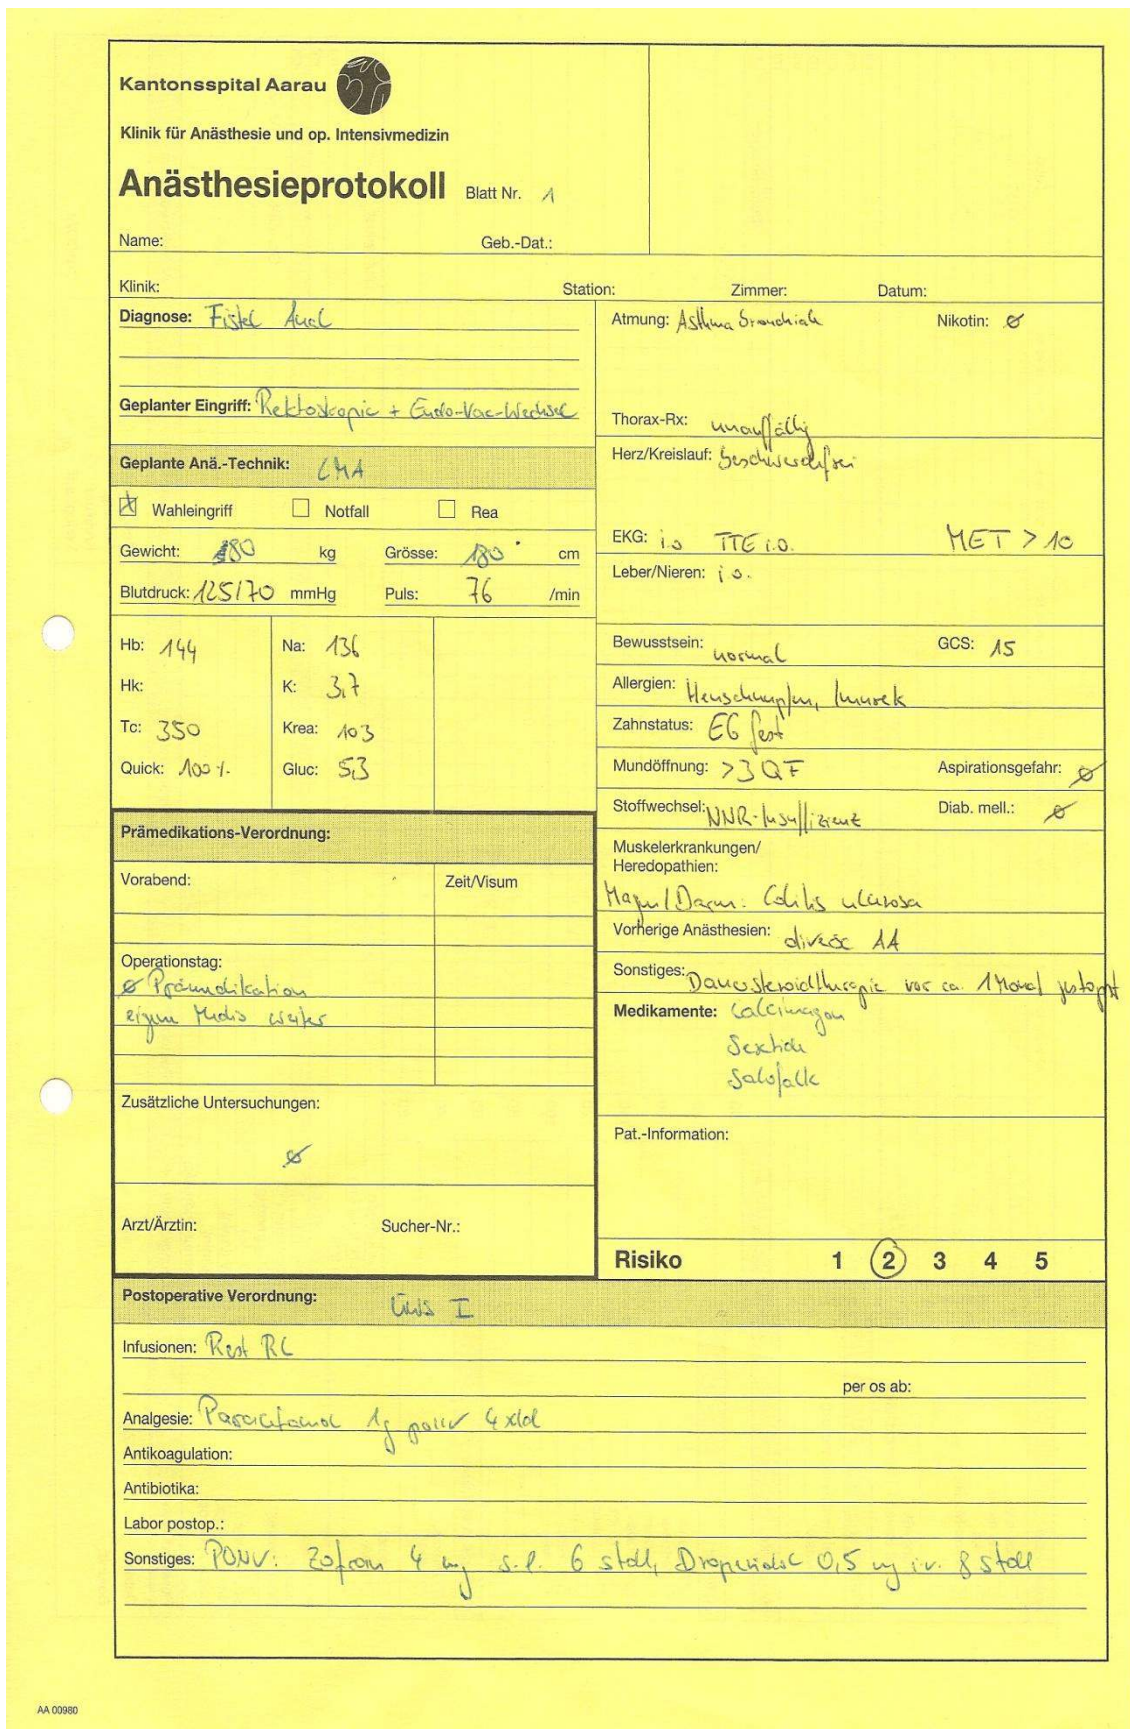 Kantonsspital Aarau
Klinik für Anästhesie und op. Intensivmedizin
Anästhesieprotokoll Blatt Nr. 1
Name: Geb.-Dat.:
Klinik: Station: Zimmer: Datum:
Diagnose: Fistel Anal
Geplanter Eingriff: Rektoskopie + Endo-Vac-Wechsel
Geplante Anä.-Technik: LMA
Wahleingriff Notfall Rea
Gewicht: 80 kg Grösse: 180 cm
Blutdruck: 125/70 mmHg Puls: 76 /min
Hb: 144 Na: 136
Hk: K: 3,7
Tc: 350 Krea: 103
Quick: 100 % Gluc: 5,3
Prämedikations-Verordnung:
Vorabend: Zeit/Visum
Operationstag:
ø Prämedikation
eigene Medis weiter
Zusätzliche Untersuchungen:
ø
Arzt/Ärztin: Sucher-Nr.:
Atmung: Asthma bronchiale Nikotin: ø
Thorax-Rx: unauffällig
Herz/Kreislauf: beschwerdefrei
EKG: i.o TTE i.o. MET > 10
Leber/Nieren: i.o.
Bewusstsein: normal GCS: 15
Allergien: Heuschnupfen, Imurek
Zahnstatus: EG fest
Mundöffnung: >3 QF Aspirationsgefahr: ø
Stoffwechsel: NNR-Insuffizienz Diab. mell.: ø
Muskelerkrankungen/
Heredopathien:
Magen/Darm: Colitis ulcerosa
Vorherige Anästhesien: diverse AA
Sonstiges: Dauersteroidtherapie vor ca. 1 Monat gestoppt
Medikamente: Calcimagon
Seretide
Salofalk
Pat.-Information:
Risiko 1 2 3 4 5
Postoperative Verordnung: I
Infusionen: Rest RL
per os ab:
Analgesie: Paracetamol 1g po/iv 4xtd
Antikoagulation:
Antibiotika:
Labor postop.:
Sonstiges: PONV: Zofran 4 mg s.l. 6 stdl, Droperidol 0,5 mg i.v. 8 stdl
AA 00980